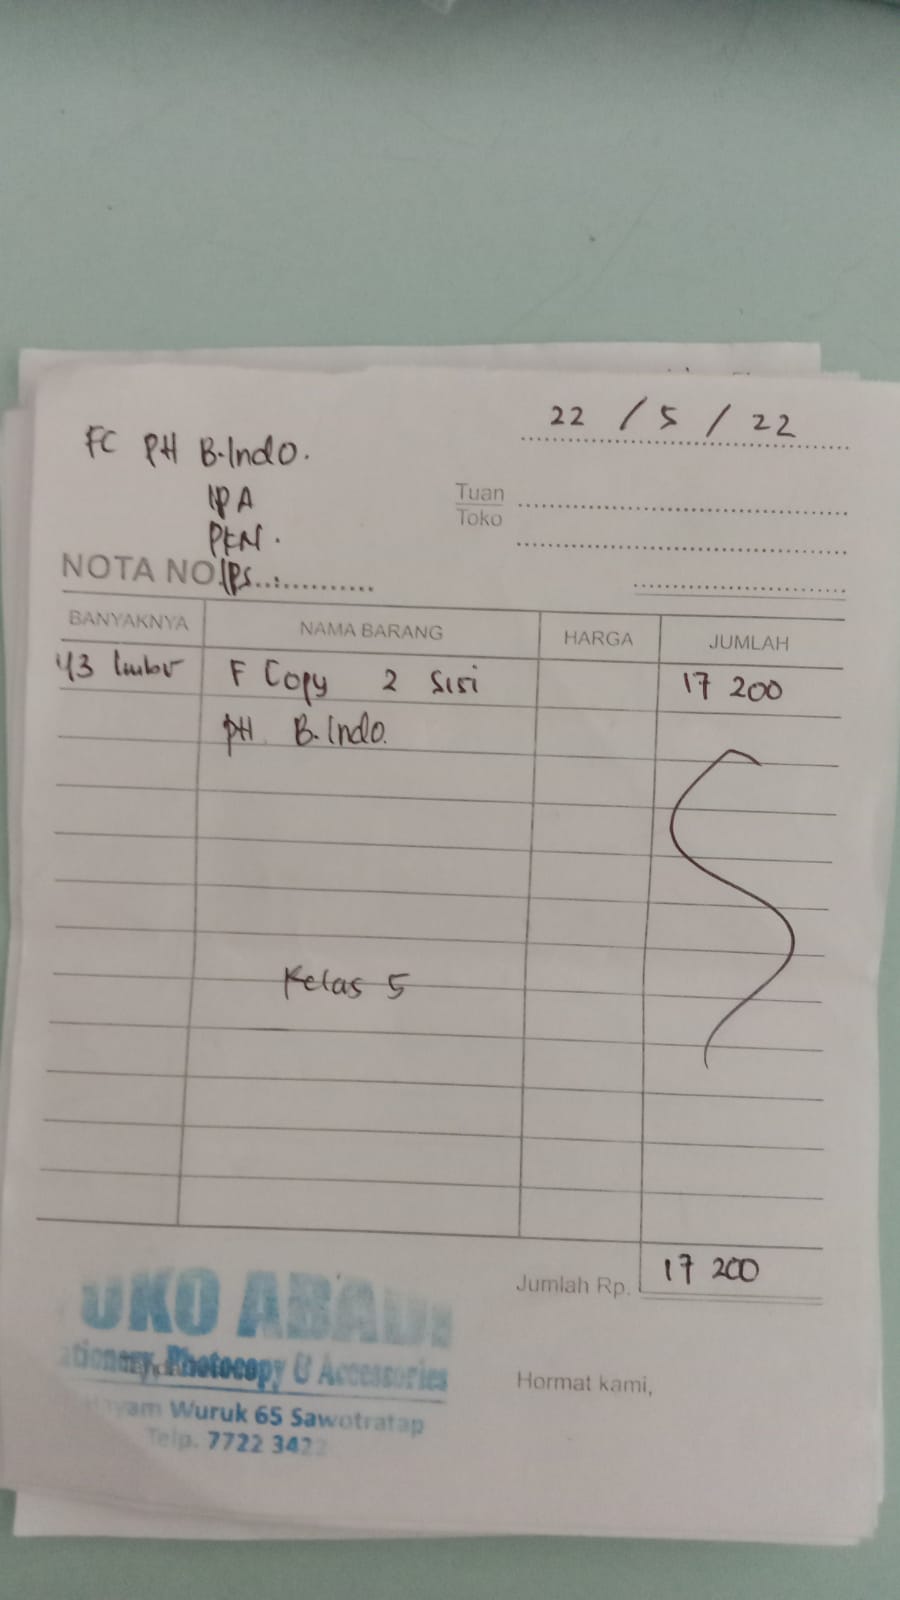 22 / 5 / 22
FC PH B.Indo.
IPA
PKN.
IPS
Tuan
Toko
NOTA NO.
BANYAKNYA NAMA BARANG HARGA JUMLAH
43 lmbr F Copy 2 Sisi 17 200
PH B.Indo.
Kelas 5
Jumlah Rp. 17 200
Hormat kami,
UKO ABADI
ationery, Photocopy & Accessories
yam Wuruk 65 Sawotratap
Telp. 7722 3422